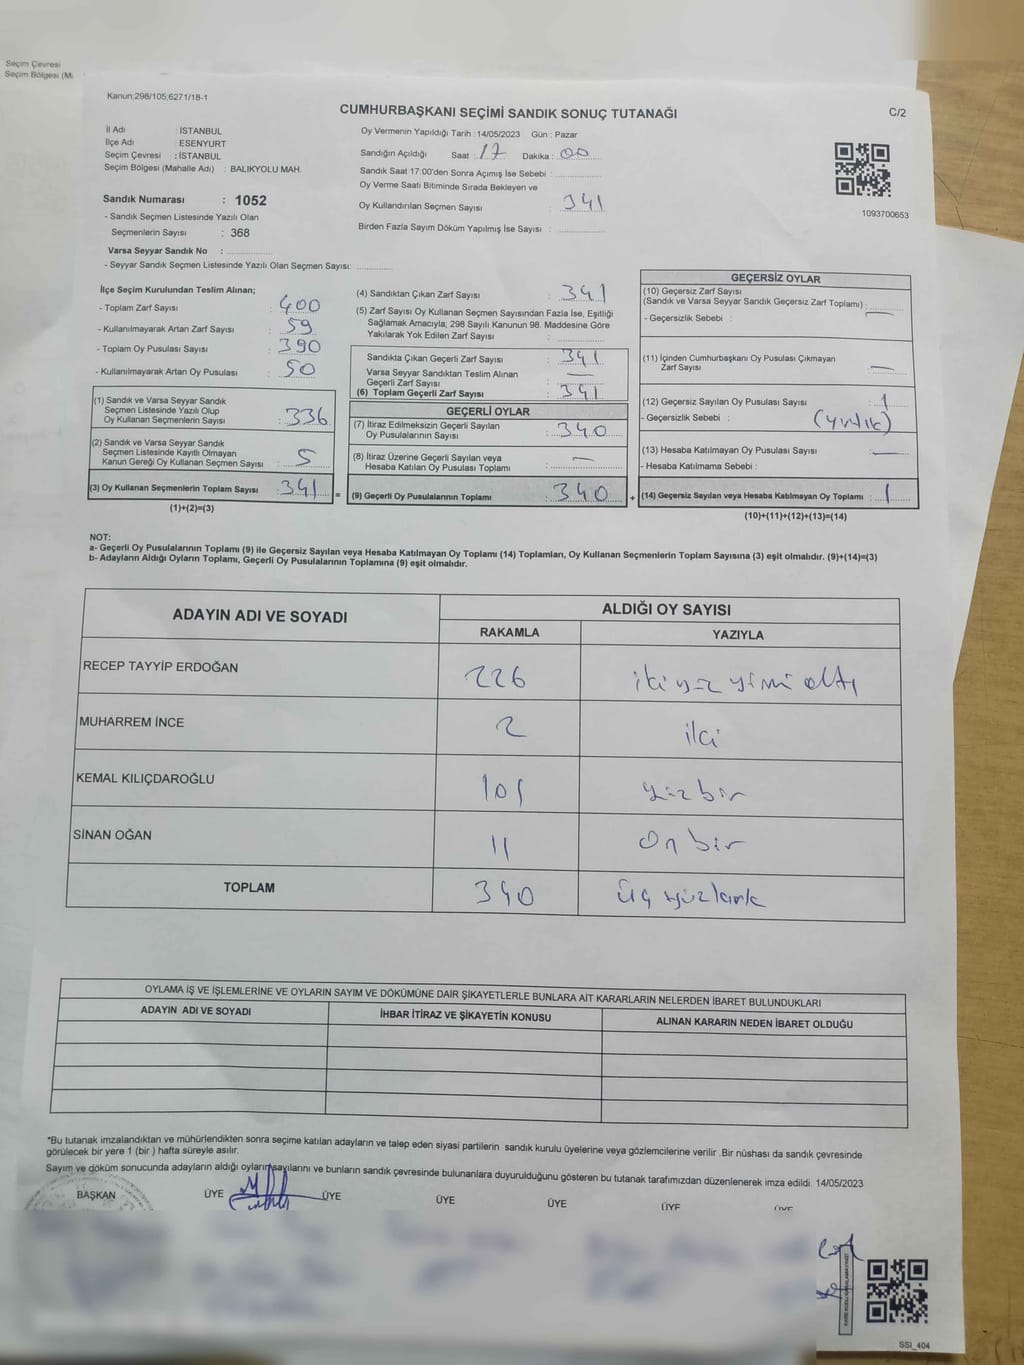 Seçim Çevresi
Seçim Bölgesi (M
Kanun;298/105,6271/18-1
CUMHURBAŞKANI SEÇİMİ SANDIK SONUÇ TUTANAĞI
C/2
İl Adı : İSTANBUL
İlçe Adı : ESENYURT
Seçim Çevresi : İSTANBUL
Seçim Bölgesi (Mahalle Adı) : BALIKYOLU MAH.
Sandık Numarası : 1052
- Sandık Seçmen Listesinde Yazılı Olan
Seçmenlerin Sayısı : 368
Varsa Seyyar Sandık No :
- Seyyar Sandık Seçmen Listesinde Yazılı Olan Seçmen Sayısı:
Oy Vermenin Yapıldığı Tarih : 14/05/2023 Gün : Pazar
Sandığın Açıldığı Saat : 17 Dakika : 00
Sandık Saat 17:00'den Sonra Açımış İse Sebebi :
Oy Verme Saati Bitiminde Sırada Bekleyen ve
Oy Kullandırılan Seçmen Sayısı : 341
Birden Fazla Sayım Döküm Yapılmış İse Sayısı :
1093700653
İlçe Seçim Kurulundan Teslim Alınan;
- Toplam Zarf Sayısı : 400
- Kullanılmayarak Artan Zarf Sayısı : 59
- Toplam Oy Pusulası Sayısı : 390
- Kullanılmayarak Artan Oy Pusulası : 50
(1) Sandık ve Varsa Seyyar Sandık
Seçmen Listesinde Yazılı Olup
Oy Kullanan Seçmenlerin Sayısı : 336
(2) Sandık ve Varsa Seyyar Sandık
Seçmen Listesinde Kayıtlı Olmayan
Kanun Gereği Oy Kullanan Seçmen Sayısı : 5
(3) Oy Kullanan Seçmenlerin Toplam Sayısı : 341
(1)+(2)=(3)
=
(4) Sandıktan Çıkan Zarf Sayısı : 341
(5) Zarf Sayısı Oy Kullanan Seçmen Sayısından Fazla İse, Eşitliği
Sağlamak Amacıyla; 298 Sayılı Kanunun 98. Maddesine Göre
Yakılarak Yok Edilen Zarf Sayısı :
Sandıkta Çıkan Geçerli Zarf Sayısı : 341
Varsa Seyyar Sandıktan Teslim Alınan
Geçerli Zarf Sayısı : —
(6) Toplam Geçerli Zarf Sayısı : 341
GEÇERLİ OYLAR
(7) İtiraz Edilmeksizin Geçerli Sayılan
Oy Pusulalarının Sayısı : 340
(8) İtiraz Üzerine Geçerli Sayılan veya
Hesaba Katılan Oy Pusulası Toplamı : —
(9) Geçerli Oy Pusulalarının Toplamı : 340
+
GEÇERSİZ OYLAR
(10) Geçersiz Zarf Sayısı
(Sandık ve Varsa Seyyar Sandık Geçersiz Zarf Toplamı) : —
- Geçersizlik Sebebi :
(11) İçinden Cumhurbaşkanı Oy Pusulası Çıkmayan
Zarf Sayısı : —
(12) Geçersiz Sayılan Oy Pusulası Sayısı : 1
- Geçersizlik Sebebi : (yırtık)
(13) Hesaba Katılmayan Oy Pusulası Sayısı : —
- Hesaba Katılmama Sebebi :
(14) Geçersiz Sayılan veya Hesaba Katılmayan Oy Toplamı : 1
(10)+(11)+(12)+(13)=(14)
NOT:
a- Geçerli Oy Pusulalarının Toplamı (9) ile Geçersiz Sayılan veya Hesaba Katılmayan Oy Toplamı (14) Toplamları, Oy Kullanan Seçmenlerin Toplam Sayısına (3) eşit olmalıdır. (9)+(14)=(3)
b- Adayların Aldığı Oyların Toplamı, Geçerli Oy Pusulalarının Toplamına (9) eşit olmalıdır.
ADAYIN ADI VE SOYADI ALDIĞI OY SAYISI
RAKAMLA YAZIYLA
RECEP TAYYİP ERDOĞAN 226 iki yüz yirmi altı
MUHARREM İNCE 2 iki
KEMAL KILIÇDAROĞLU 101 yüz bir
SİNAN OĞAN 11 on bir
TOPLAM 340 üç yüzkırk
OYLAMA İŞ VE İŞLEMLERİNE VE OYLARIN SAYIM VE DÖKÜMÜNE DAİR ŞİKAYETLERLE BUNLARA AİT KARARLARIN NELERDEN İBARET BULUNDUKLARI
ADAYIN ADI VE SOYADI İHBAR İTİRAZ VE ŞİKAYETİN KONUSU ALINAN KARARIN NEDEN İBARET OLDUĞU
*Bu tutanak imzalandıktan ve mühürlendikten sonra seçime katılan adayların ve talep eden siyasi partilerin sandık kurulu üyelerine veya gözlemcilerine verilir .Bir nüshası da sandık çevresinde
görülecek bir yere 1 (bir ) hafta süreyle asılır.
Sayım ve döküm sonucunda adayların aldığı oyların sayılarını ve bunların sandık çevresinde bulunanlara duyurulduğunu gösteren bu tutanak tarafımızdan düzenlenerek imza edildi. 14/05/2023
BAŞKAN ÜYE ÜYE ÜYE ÜYE ÜYE ÜYE
SSI_404